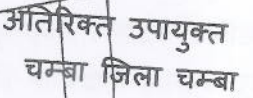 अतिरिक्त उपायुक्त
चम्बा जिला चम्बा